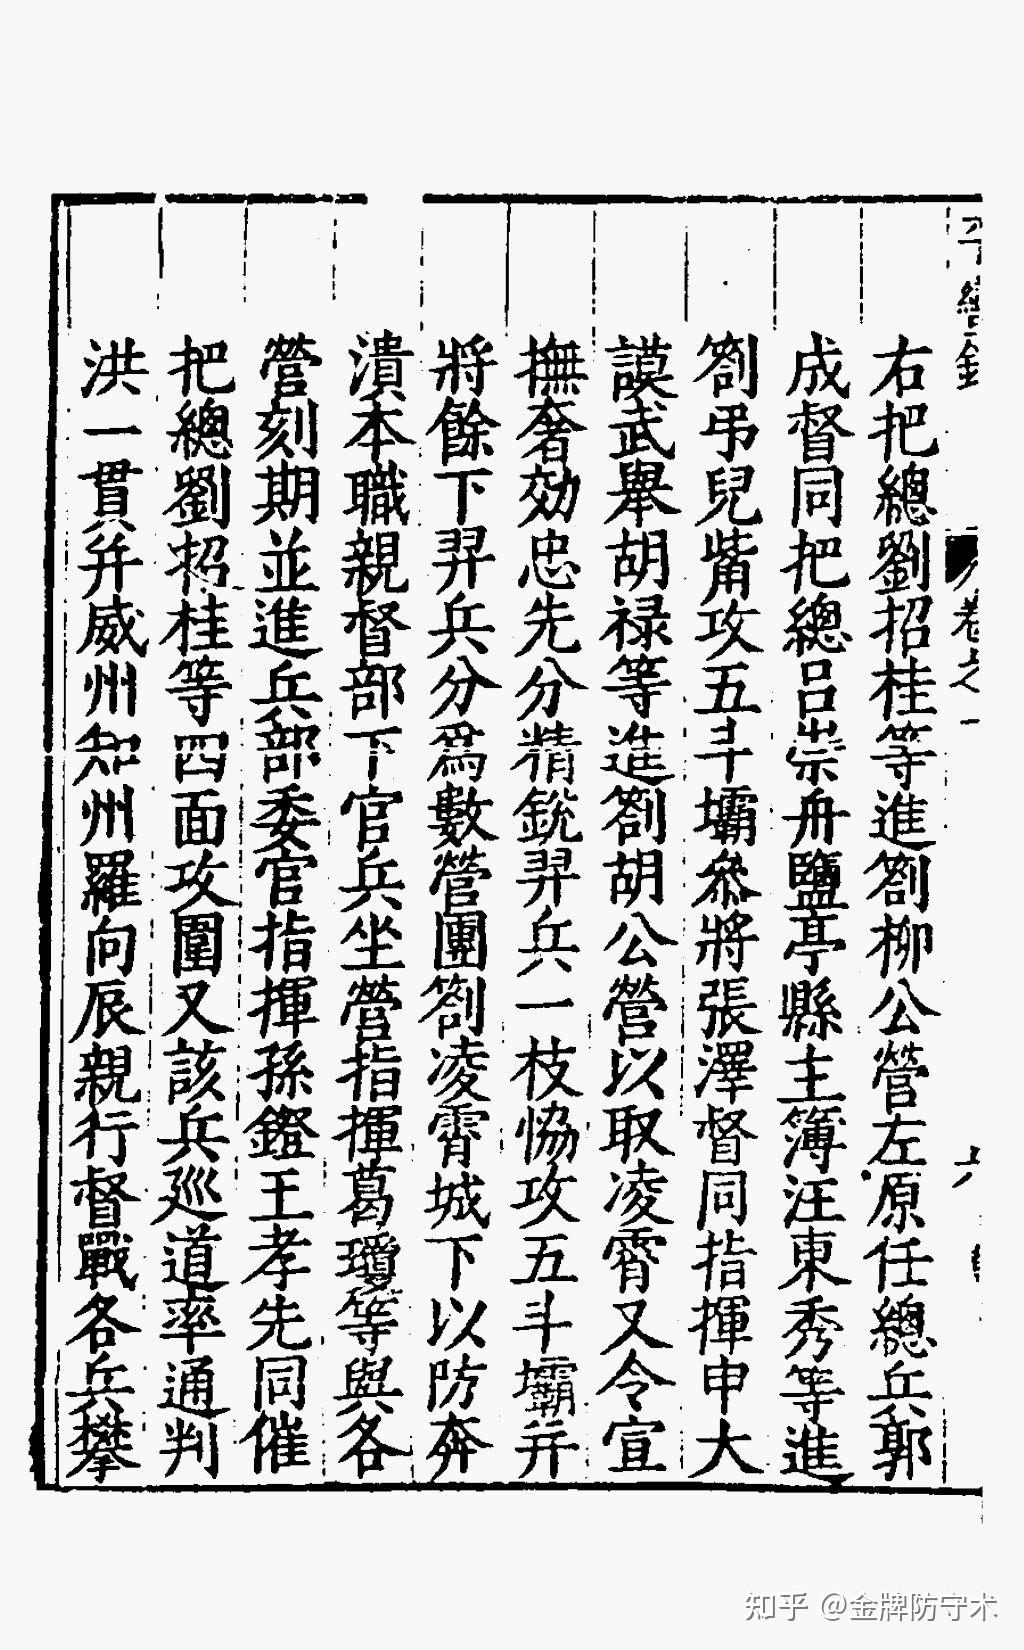 右把總劉招桂等進劄柳公營左原任總兵郭
成督同把總呂崇舟鹽亭縣主簿汪東秀等進
劄弔兒觜攻五斗壩叅將張澤督同指揮申大
謨武舉胡禄等進劄胡公營以取凌霄又令宣
撫奢効忠先分精銳羿兵一枝恊攻五斗壩并
將餘下羿兵分爲數營團劄凌霄城下以防奔
潰本職親督部下官兵坐營指揮葛瓊等與各
營刻期並進兵部委官指揮孫鐙王孝先同催
把總劉招桂等四面攻圍又該兵廵道率通判
洪一貫并威州知州羅向辰親行督戰各兵攀
卷之一
六
知乎 @金牌防守术